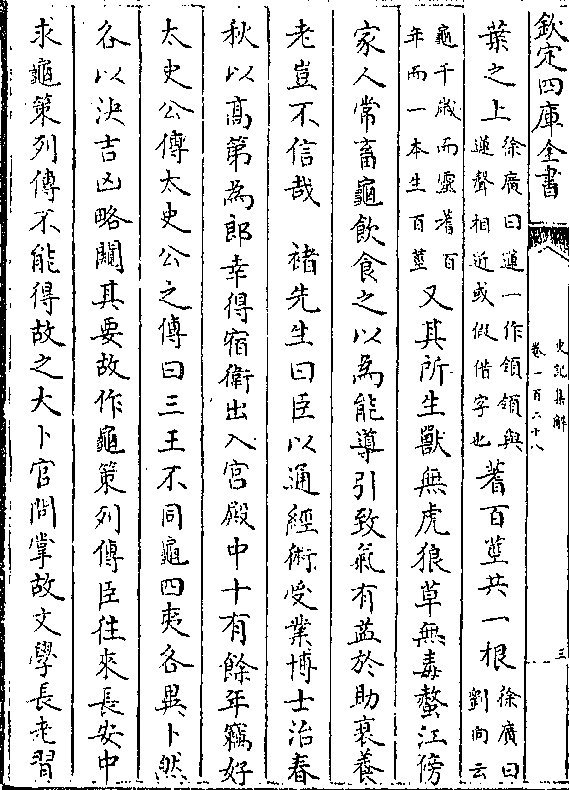 欽定四庫全書
史記集解
卷一百二十八
三
葉之上
徐廣曰蓮一作領領與
蓮聲相近或假借字也
蓍百莖共一根
徐廣曰
劉向云
龜千歲而靈蓍百
年而一本生百莖
又其所生獸無虎狼草無毒螫江傍
家人常畜龜飲食之以為能導引致氣有益於助衰養
老豈不信哉　褚先生曰臣以通經術受業博士治春
秋以高第為郎幸得宿衛出入宮殿中十有餘年竊好
太史公傳太史公之傳曰三王不同龜四夷各異卜然
各以決吉凶略闚其要故作龜策列傳臣往來長安中
求龜策列傳不能得故之大卜官問掌故文學長老習